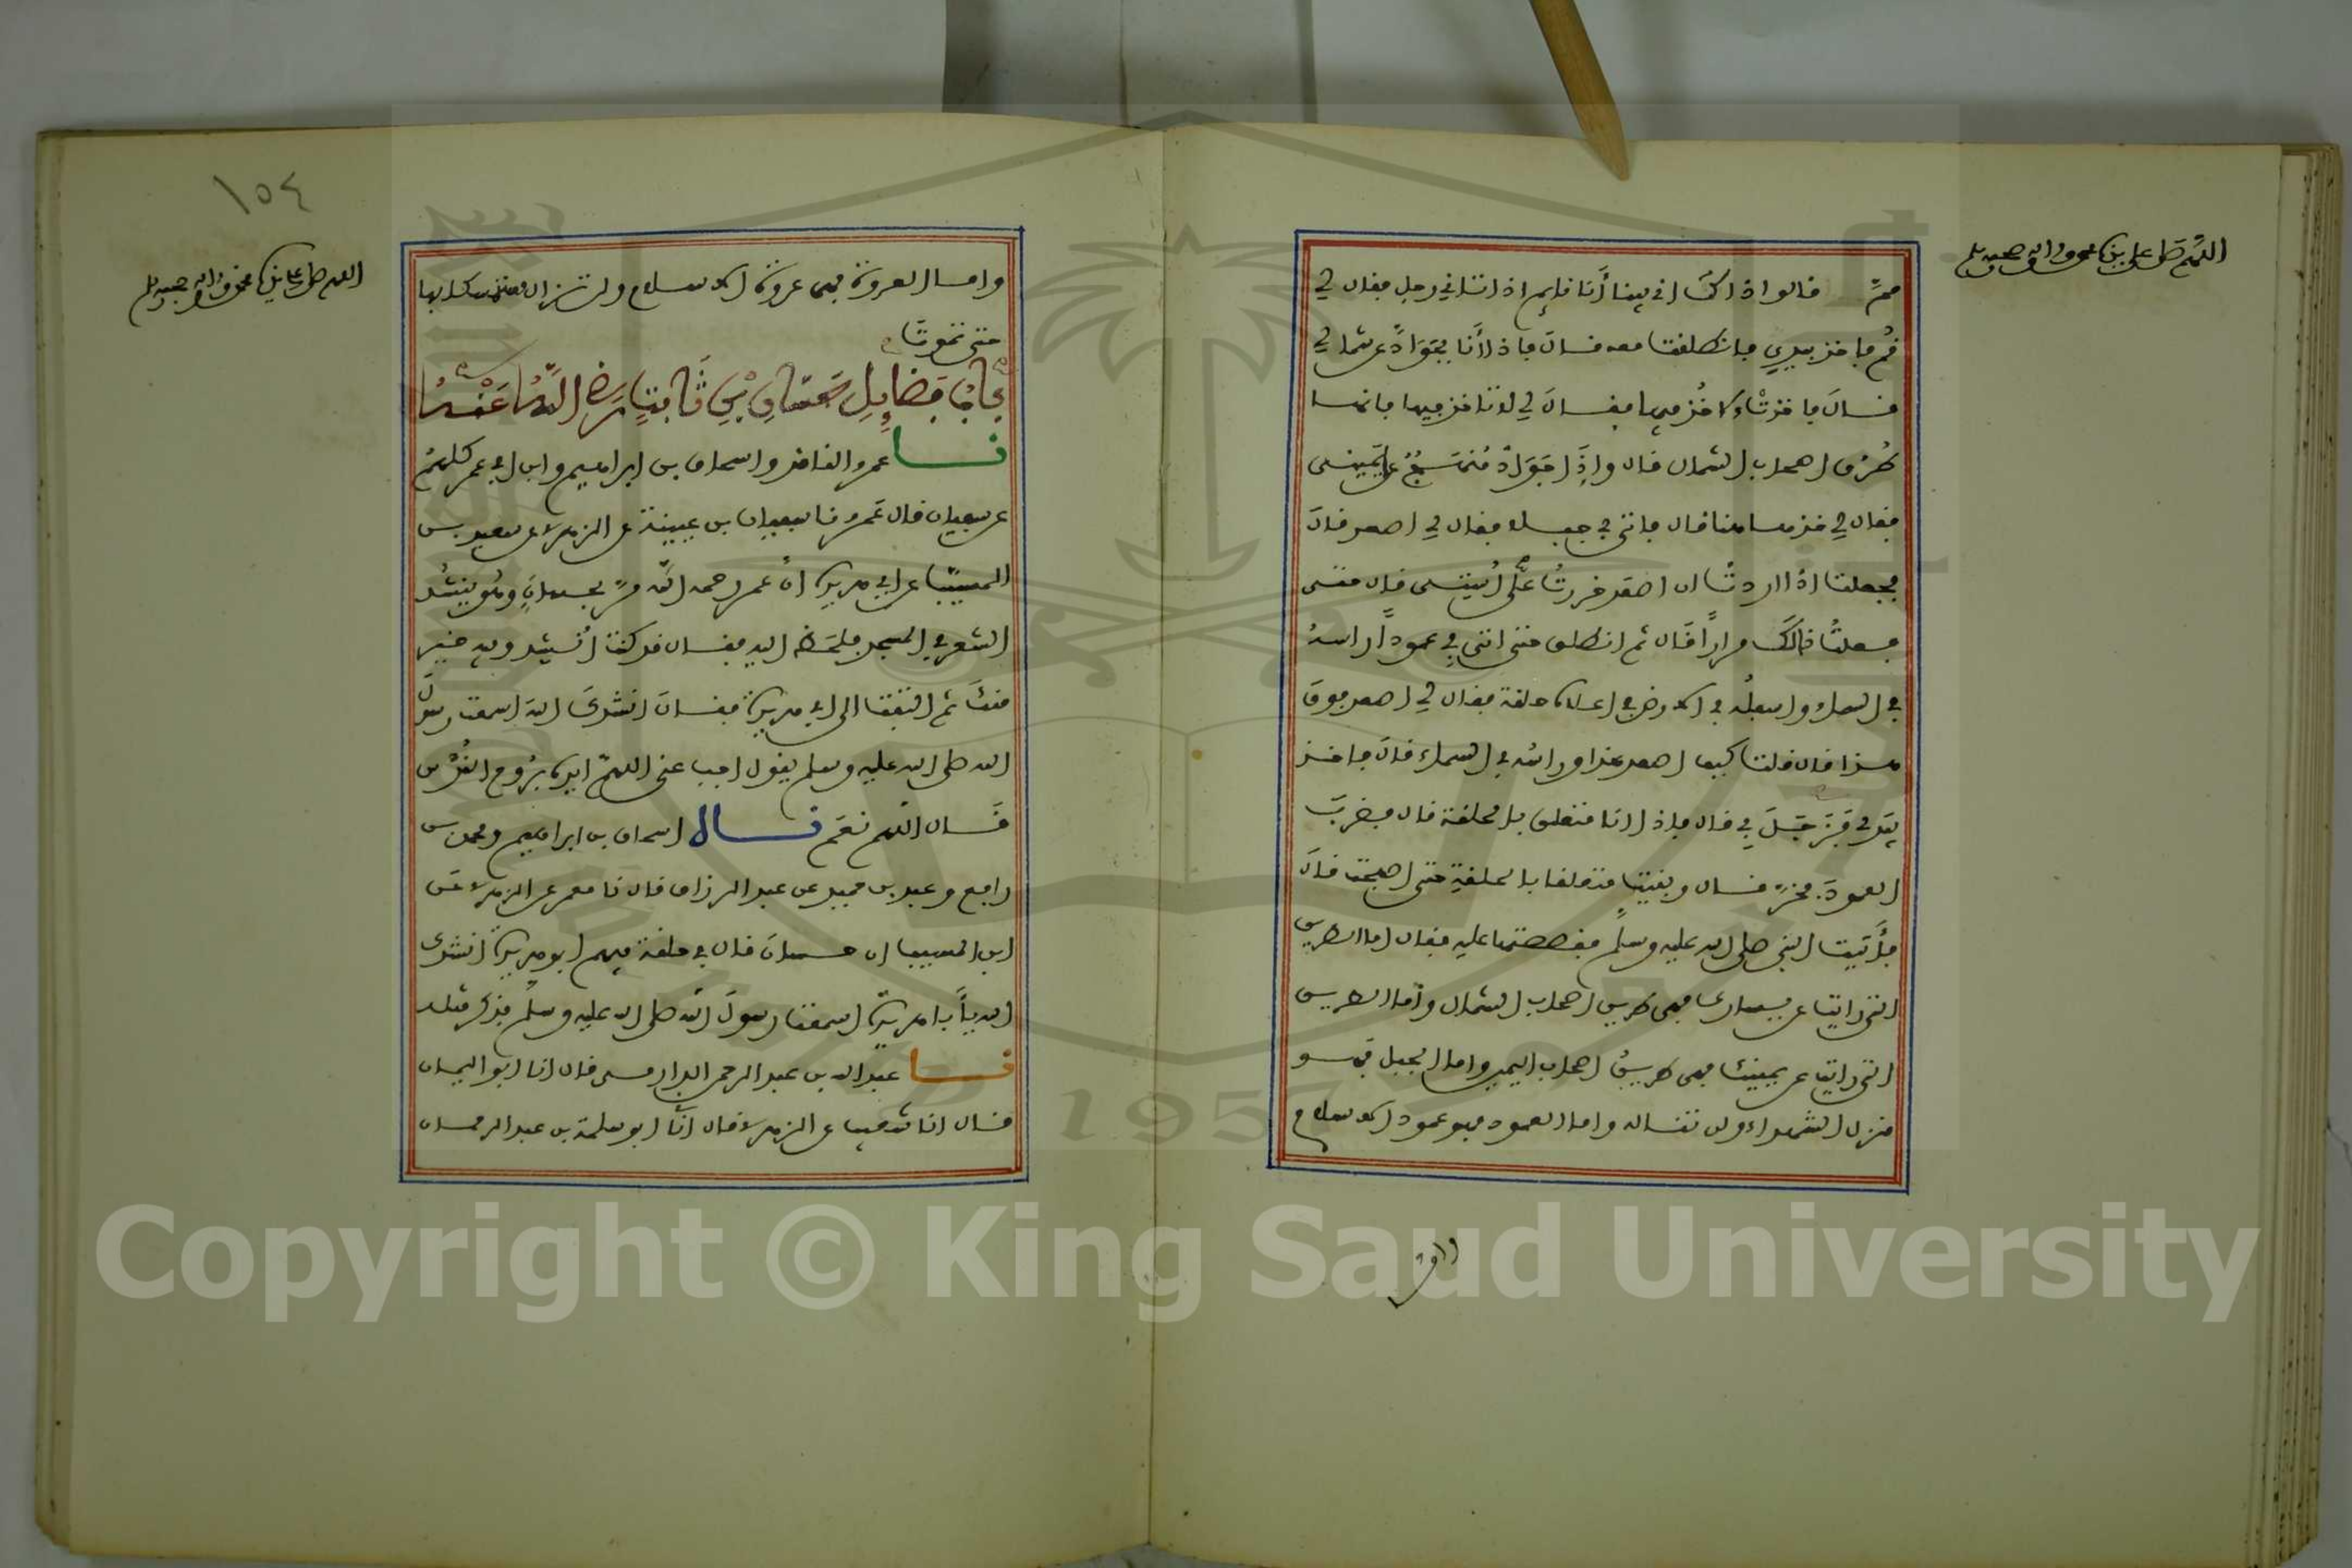 اللهم صل على نبينا محمد وآله وصحبه وسلم
مم قالوا ذاك اني بينا أنا نايم اذ اتاني رجل فقال لي
قم فاخذ بيدي فانطلقت معه قال فاذا أنا بجواد عن شمالي
قال فاخذت لاخذ فيها فقال لي لا تاخذ فيها فانها
طرق اصحاب الشمال قال واذا جواد منهج على يميني
فقال لي خذ هاهنا قال فاتى بي جبلا فقال لي اصعد قال
فجعلت اذا اردت ان اصعد خررت على استي قال حتى
فعلت ذالك مرارا قال ثم انطلق حتى اتى بي عمودا راسه
في السماء واسفله في الارض في اعلاه حلقة فقال لي اصعد فوق
هذا قال قلت كيف اصعد هذا وراسه في السماء قال فاخذ
بيدي فزجل بي قال فاذا انا متعلق بالحلقة قال فضرب
العمود فخر قال وبقيت متعلقا بالحلقة حتى اصبحت قال
فأتيت النبي صلى الله عليه وسلم فقصصتها عليه فقال اما الطريق
التي رايت عن يسارك فهي طريق اصحاب الشمال وأما الطريق
التي رايت عن يمينك فهي طريق اصحاب اليمين واما الجبل فهو
منزل الشهداء ولن تناله واما العمود فهو عمود الاسلام
واما
١٥٤
اللهم صل على نبينا محمد وآله وصحبه وسلم
واما العروة فهي عروة الاسلام ولن تزال متمسكا بها
حتى تموت
باب فضايل حسان بن ثابت رضي الله عنه
نا عمرو الناقد واسحاق بن ابراهيم وابن ابي عمر كلهم
عن سفيان قال عمرو نا سفيان بن عيينة عن الزهري عن سعيد بن
المسيب عن ابي هريرة ان عمر رحمه الله مر بحسان وهو ينشد
الشعر في المسجد فلحظ اليه فقال قد كنت أنشد وفيه خير
منك ثم التفت الى ابي هريرة فقال انشدك الله اسمعت رسول
الله صلى الله عليه وسلم يقول اجب عني اللهم ايده بروح القدس
قال اللهم نعم قال اسحاق بن ابراهيم ومحمد بن
رافع وعبد بن حميد عن عبد الرزاق قال نا معمر عن الزهري عن
ابن المسيب ان حسان قال في حلقة فيهم ابو هريرة انشدك
الله يأبا هريرة اسمعت رسول الله صلى الله عليه وسلم فذكر مثله
نا عبد الله بن عبد الرحمن الدارمي قال انا ابو اليمان
قال انا شعيب عن الزهري قال انا ابو سلمة بن عبد الرحمان
Copyright © King Saud University
1957